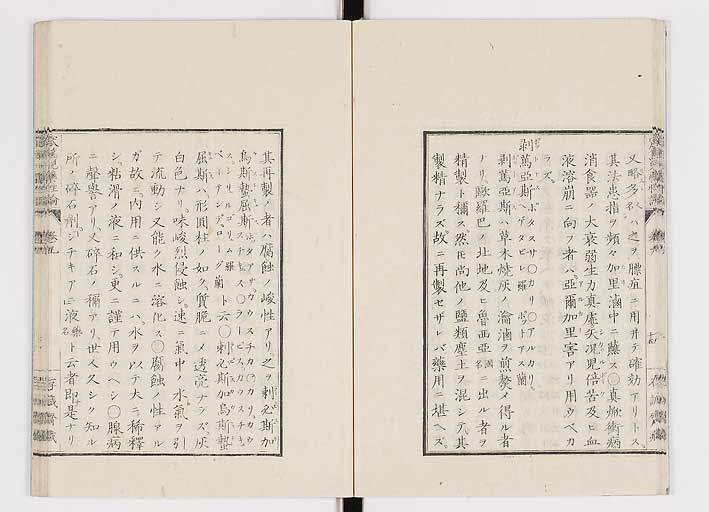 又略多人名ハ之ヲ膿疽ニ用井テ確効アリトス
其法患指ヲ頻々加里滷中ニ蘸ス〇真欬衝病
消食器ノ大衰弱生力真虚失况児倍苦及ヒ血
液溶崩ニ向フ者ハ亞爾加里害アリ用ウベカ
ラズ
剥篤亞斯 ボタスサ〇カリ〇アルカリ
ヘゲタビレ羅 ポットアス蘭
剥篤亞斯ハ草木焼灰ノ瀹滷ヲ煎熬メ得ル者
ノリ歐羅巴ノ北地及ヒ魯西亞國名ニ出ル者ヲ
精製ト稱ス然𪜈尚他ノ鹽類塵土ヲ混シテ其
製精ナラズ故ニ再製セザレバ藥用ニ堪ヘズ
其再製ノ者ハ腐蝕ノ峻性アリ之ヲ刺必斯加
烏斯蟄屈斯
ト云〇刺必斯加烏斯蟄
屈斯ハ形圓柱ノ如ク質脆ニメ透亮ナラズ灰
白色ナリ味峻烈侵蝕シ速ニ氣中ノ水氣ヲ引
テ流動シ又能ク水ニ溶化ス〇腐蝕ノ性アル
ガ故ニ内用ニ供スルニハ水ヲ以テ大ニ稀釋
シ粘滑ノ液ニ和シ更ニ謹テ用ウヘシ〇腺病
ニ聲譽アリ又碎石ノ稱アリ世人久シク知ル
所ノ碎石劑シチキアニ液藥名ト云者即是ナリ